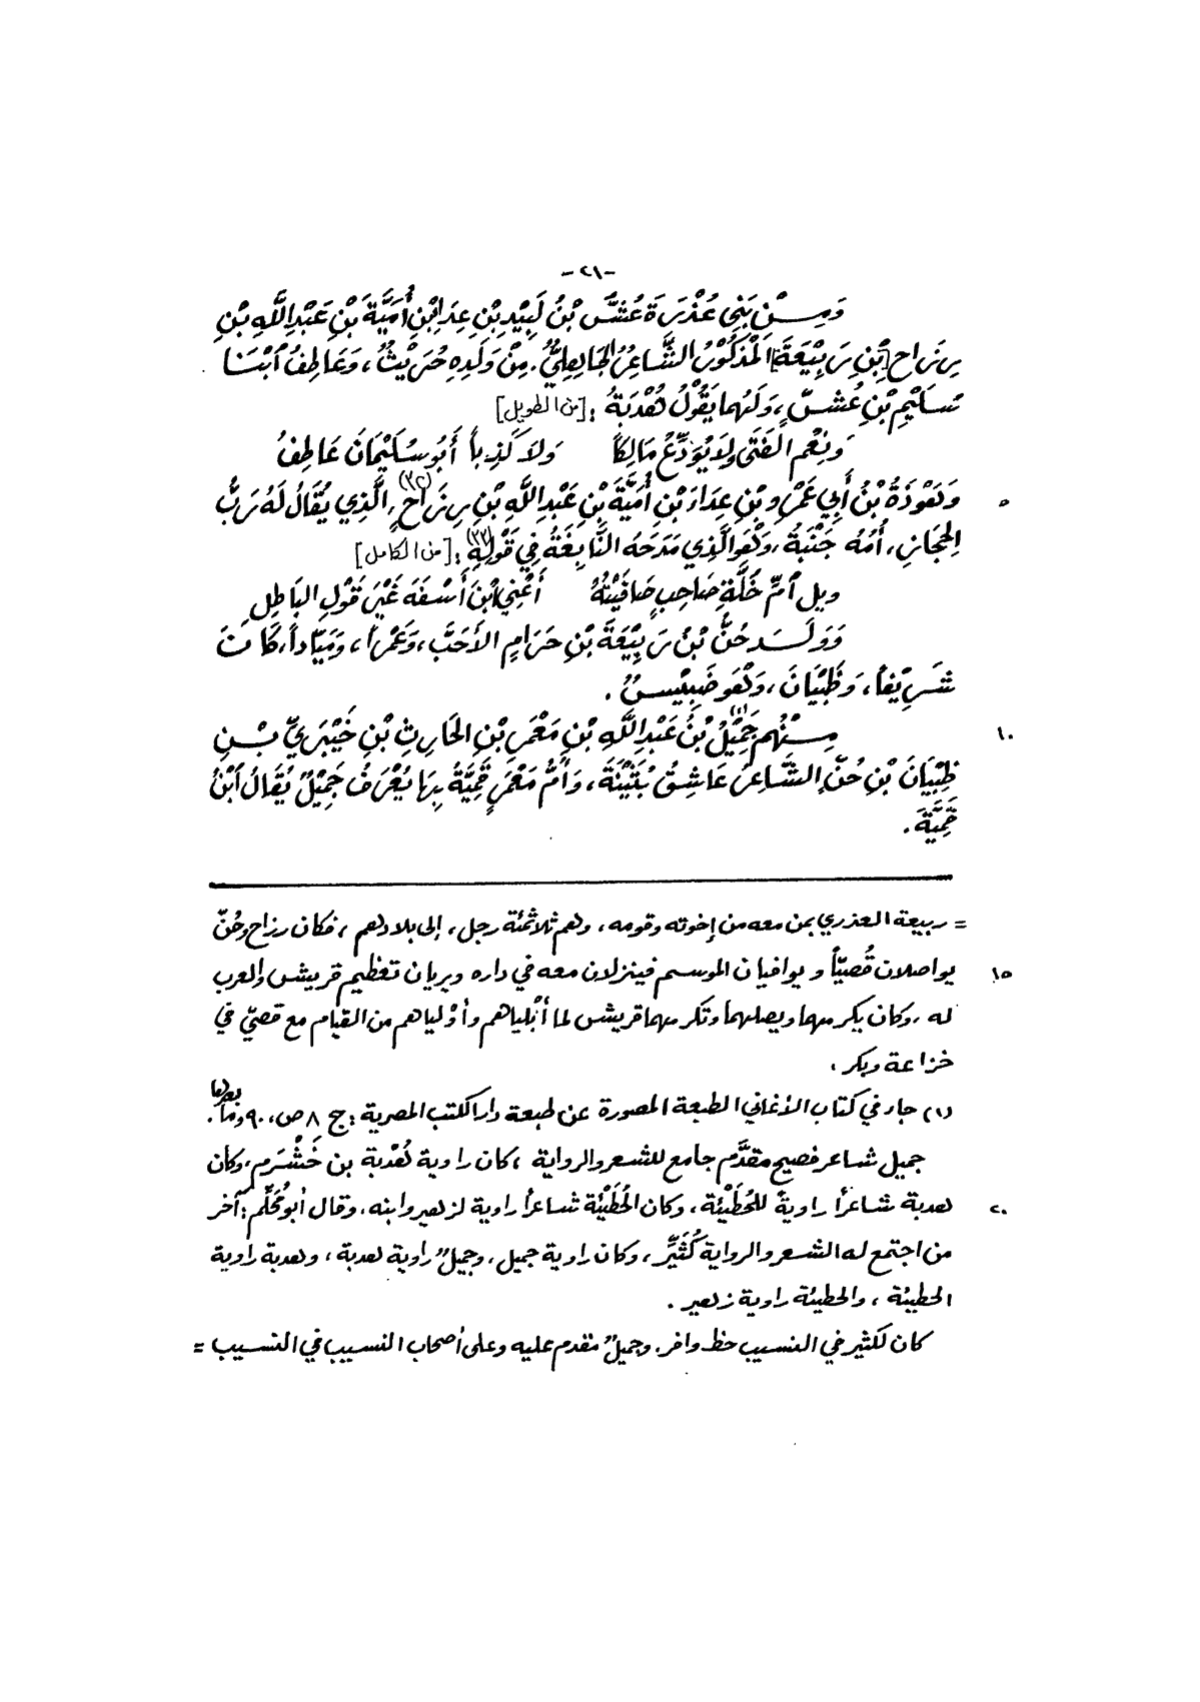 -٢١-
وَمِــنْ بَنِي عُذْرَةَ عُشُّ بْنُ لَبِيْدِ بْنِ عِدَاءِ بْنِ أُمَيَّةَ بْنِ عَبْدِ اللَّهِ بْنِ
رِزَاحِ [بْنِ رَبِيْعَةَ] المَذْكُوْرُ الشَّاعِرُ الجَاهِلِيُّ. مِنْ وَلَدِهِ حُرَيْثٌ، وَعَاطِفُ ابْنَا
سُلَيْمِ بْنِ عُشٍّ، وَلَهُما يَقُوْلُ هُدْبَةُ: [من الطويل]
وَنِعْمَ الفَتَى وَلَا يُوَدِّعُ مَالِكاً وَلاَ كَذِباً أَبُو سُلَيْمَانَ عَاطِفُ
٥ وَهَوْذَةُ بْنُ أَبِي عَمْرِو بْنِ عِدَاءَ بْنِ أُمَيَّةَ بْنِ عَبْدِ اللَّهِ بْنِ رِزَاحٍ (٣٢)، الَّذِي يُقَالُ لَهُ رَبُّ
الحِجَازِ، أُمُّهُ جَنْبَةُ، وَهُوَ الَّذِي مَدَحَهُ النَّابِغَةُ فِي قَوْلِهِ (٣٣): [من الكامل]
ويل أمِّ خُلَّةِ صَاحِبٍ صَافَيْتُهُ أَعْنِي ابْنَ أَسْفَهَ غَيْرَ قَوْلِ البَاطِلِ
وَوَلَــدَ حُنُّ بْنُ رَبِيْعَةَ بْنِ حَرَامٍ الأَحَبَّ، وَعَمْراً، وَمَيَّاداً، كَانَ
شَرِيْفاً، وَظَبْيَانَ، وَهُوَ ضَبِيْسٌ.
١٠ مِــنْهُم جَمِيْلُ (١) بْنُ عَبْدِ اللَّهِ بْنِ مَعْمَرِ بْنِ الحَارِثِ بْنِ خَيْبَرِيِّ بْــنِ
ظَبْيَانَ بْنِ حُنٍّ الشَّاعِرُ عَاشِقُ بُثَيْنَةَ، وَأُمُّ مَعْمَرٍ قَمِيَّةُ بِهَا يُعْرَفُ جَمِيْلٌ يُقَالُ ابْنُ
قَمِيَّةَ.
= ربيعة العذري بمن معه من إخوته وقومه، وهم ثلاثمئة رجل، إلى بلادهم، فكان رزاح وحُنّ
١٥ يواصلان قُصيّاً ويوافيان الموسم فينزلان معه في داره ويريان تعظيم قريش والعرب
له، وكان يكرمهما ويصلهما وتكرمهما قريش لما أبْلياهم وأوْلياهم من القيام مع قصيّ في
خزاعة وبكر.
(١) جاء في كتاب الأغاني الطبعة المصورة عن طبعة دار الكتب المصرية: ج ٨ ص، ٩٠ وما بعدها.
جميل شاعر فصيح مقدَّم جامع للشعر والرواية، كان راوية هُدْبة بن خَشْرَم، وكان
٢٠ هدبة شاعراً راويةً للحُطَيْئة، وكان الحُطَيْئة شاعراً راوية لزهير وابنه، وقال أبو مُحَلِّم: آخر
من اجتمع له الشعر والرواية كُثَيِّر، وكان راوية جميل، وجميلٌ راوية هدبة، وهدبة راوية
الحطيئة، والحطيئة راوية زهير.
كان لكثير في النسيب حظ وافر، وجميلٌ مقدم عليه وعلى أصحاب النسيب في النسيب =